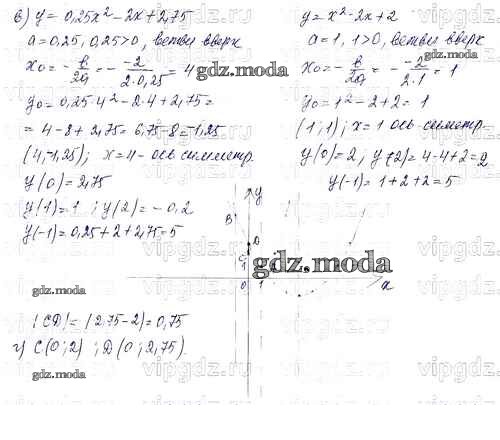 в) y = 0,25x² - 2x + 2,75
a = 0,25, 0,25 > 0, ветви вверх
x₀ = -в/2a = -(-2)/(2·0,25) = 4
y₀ = 0,25·4² - 2·4 + 2,75 =
= 4 - 8 + 2,75 = 6,75 - 8 = -1,25
(4; -1,25); x = 4 - ось симметр.
y(0) = 2,75
y(1) = 1; y(2) = -0,2
y(-1) = 0,25 + 2 + 2,75 = 5
y = x² - 2x + 2
a = 1, 1 > 0, ветви вверх
x₀ = -в/2a = -(-2)/(2·1) = 1
y₀ = 1² - 2 + 2 = 1
(1; 1); x = 1 ось симметр.
y(0) = 2, y(2) = 4 - 4 + 2 = 2
y(-1) = 1 + 2 + 2 = 5
y
B
D
C
1
0
1
x
gdz.moda
gdz.moda
gdz.moda
|CD| = |2,75 - 2| = 0,75
г) C(0; 2); D(0; 2,75).
gdz.moda
vipgdz.ru